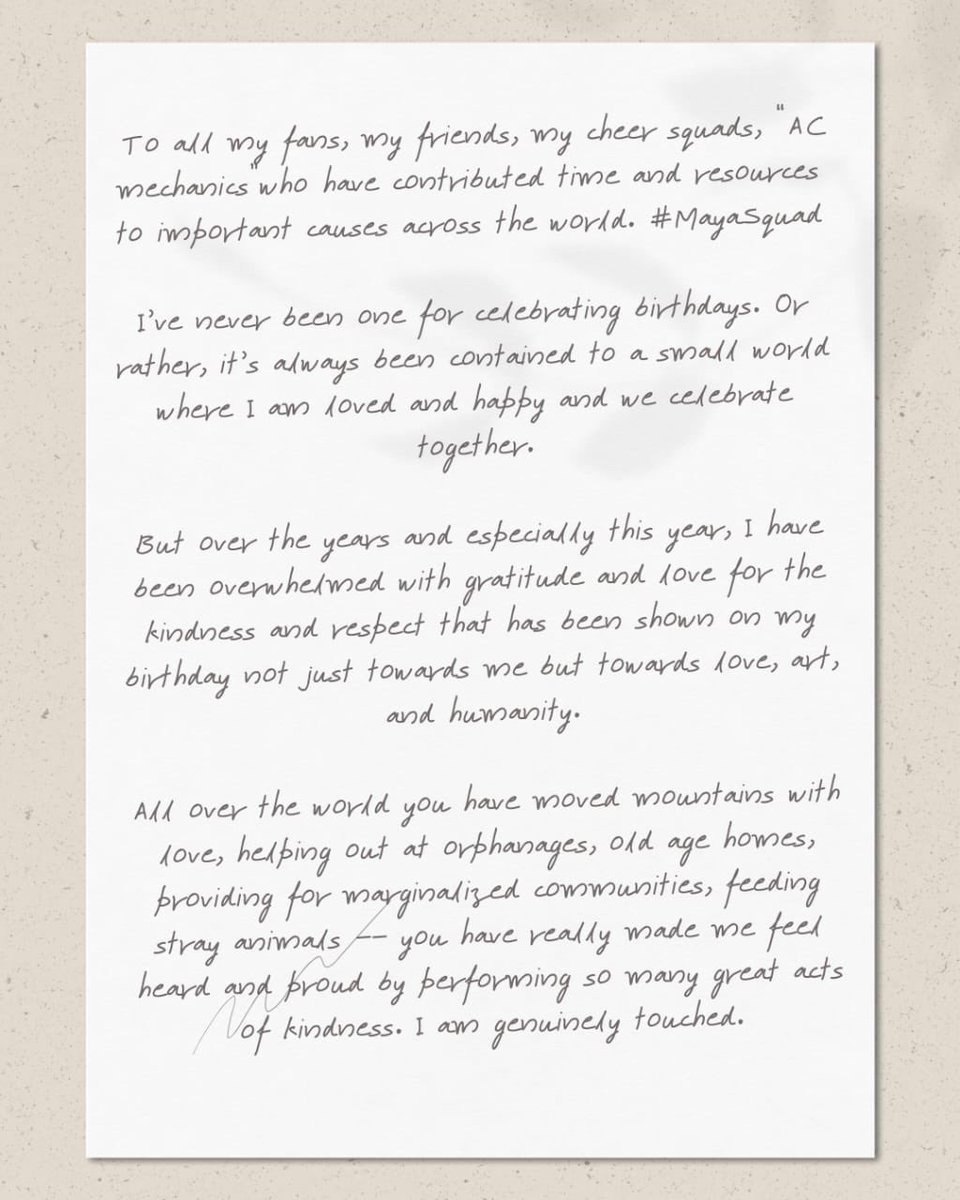 To all my fans, my friends, my cheer squads, "AC
mechanics" who have contributed time and resources
to important causes across the world. #MayaSquad
I've never been one for celebrating birthdays. Or
rather, it's always been contained to a small world
where I am loved and happy and we celebrate
together.
But over the years and especially this year, I have
been overwhelmed with gratitude and love for the
kindness and respect that has been shown on my
birthday not just towards me but towards love, art,
and humanity.
All over the world you have moved mountains with
love, helping out at orphanages, old age homes,
providing for marginalized communities, feeding
stray animals -- you have really made me feel
heard and proud by performing so many great acts
of kindness. I am genuinely touched.